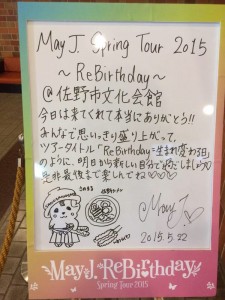 May J. Spring Tour 2015
～ReBirthday～
@佐野市文化会館
今日は来てくれて本当にありがとう!!
みんなで思いっきり盛り上がって、
ツアータイトル「ReBirthday=生まれ変わる日」
のように、明日から新しい自分で過ごしましょう
是非最後まで楽しんでね♡♡♡
さのまる
佐野ラーメン
May J.
2015.5.22
May J. ReBirthday
Spring Tour 2015